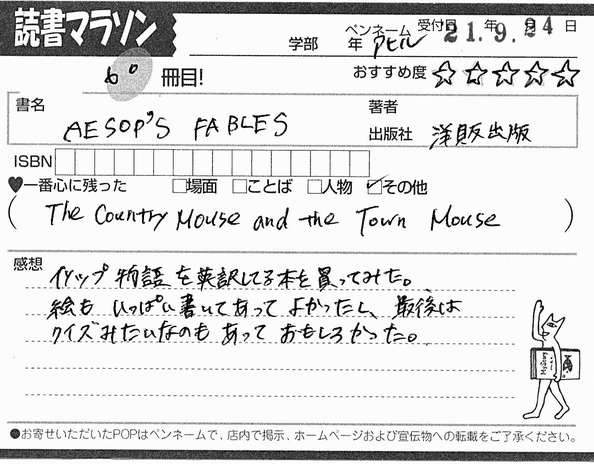 読書マラソン
学部 年 ペンネーム アヒル 受付日 21年 9.月 24日
60 冊目!
おすすめ度 ☆☆☆☆☆
書名 AESOP'S FABLES
著者
出版社 洋販出版
ISBN
♥一番心に残った □場面 □ことば □人物 ☑その他
( The Country Mouse and the Town Mouse )
感想
イソップ物語を英訳してる本を買ってみた。
絵もいっぱい書いてあってよかったし、最後は
クイズみたいなのもあっておもしろかった。
●お寄せいただいたPOPはペンネームで、店内で掲示、ホームページおよび宣伝物への転載をご了承ください。